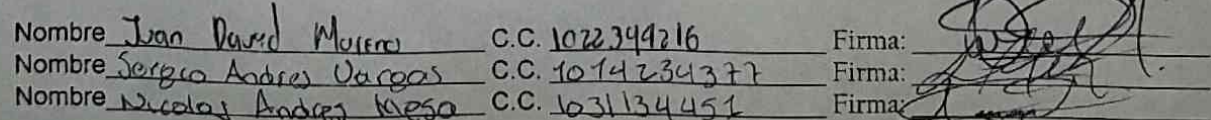 Nombre Juan David Moreno C.C. 1022344216 Firma:
Nombre Sergio Andres Vargas C.C. 1014234377 Firma:
Nombre Nicolas Andres Mesa C.C. 1031134451 Firma: